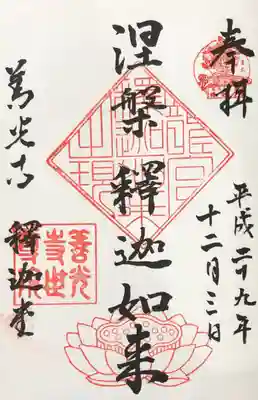 奉拝
平成二十九年
十二月三日
涅槃釋迦如来
善光寺
釋迦堂